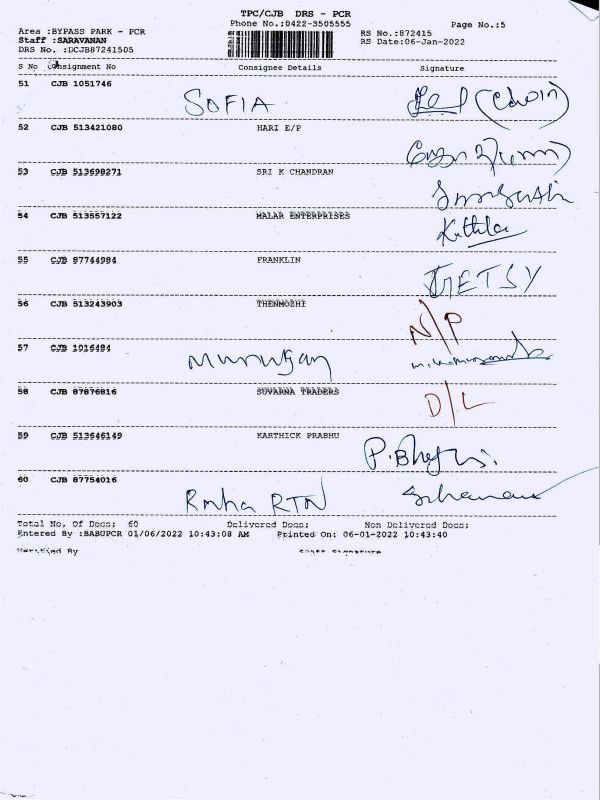 TPC/CJB DRS - PCR
Phone No.:0422-3505555
Page No.:5
Area :BYPASS PARK - PCR
RS No.:872415
Staff :SARAVANAN
RS Date:06-Jan-2022
DRS No. :DCJB87241505
S No Consignment No Consignee Details Signature
51 CJB 1051746
SOFIA (Edwin)
52 CJB 513421080 HARI E/P
53 CJB 513699271 SRI K CHANDRAN
54 CJB 513557122 MALAR ENTERPRISES
55 CJB 87744984 FRANKLIN
JETSY
56 CJB 513243903 THENMOZHI
N/P
57 CJB 1016484
Murugan
58 CJB 87876816 SUVARNA TRADERS
D/L
59 CJB 513646149 KARTHICK PRABHU
60 CJB 87754016
RTN
Total No. Of Docs: 60 Delivered Docs: Non Delivered Docs:
Entered By :BABUPCR 01/06/2022 10:43:08 AM Printed On: 06-01-2022 10:43:40
Verified By